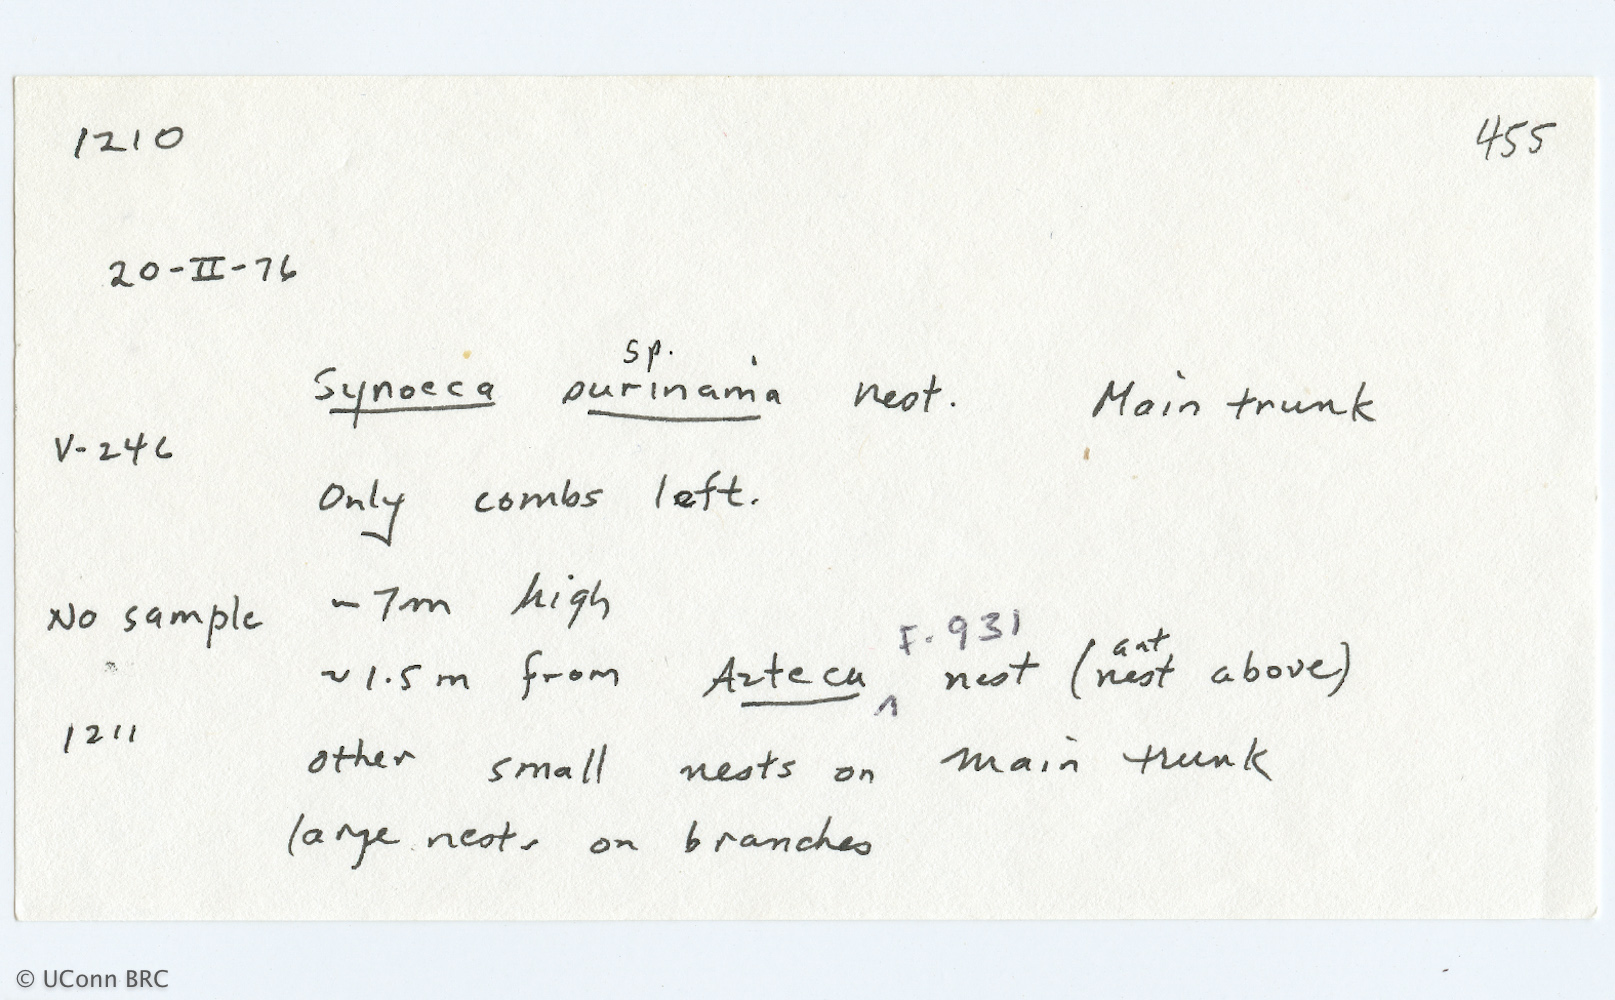 1210
455
20-II-76
sp.
Synoeca surinama nest. Main trunk
V-246
Only combs left.
~7m high
No sample
F. 931
~1.5m from Azteca ^ nest (nest above)
ant
1211
other small nests on main trunk
large nests on branches
© UConn BRC